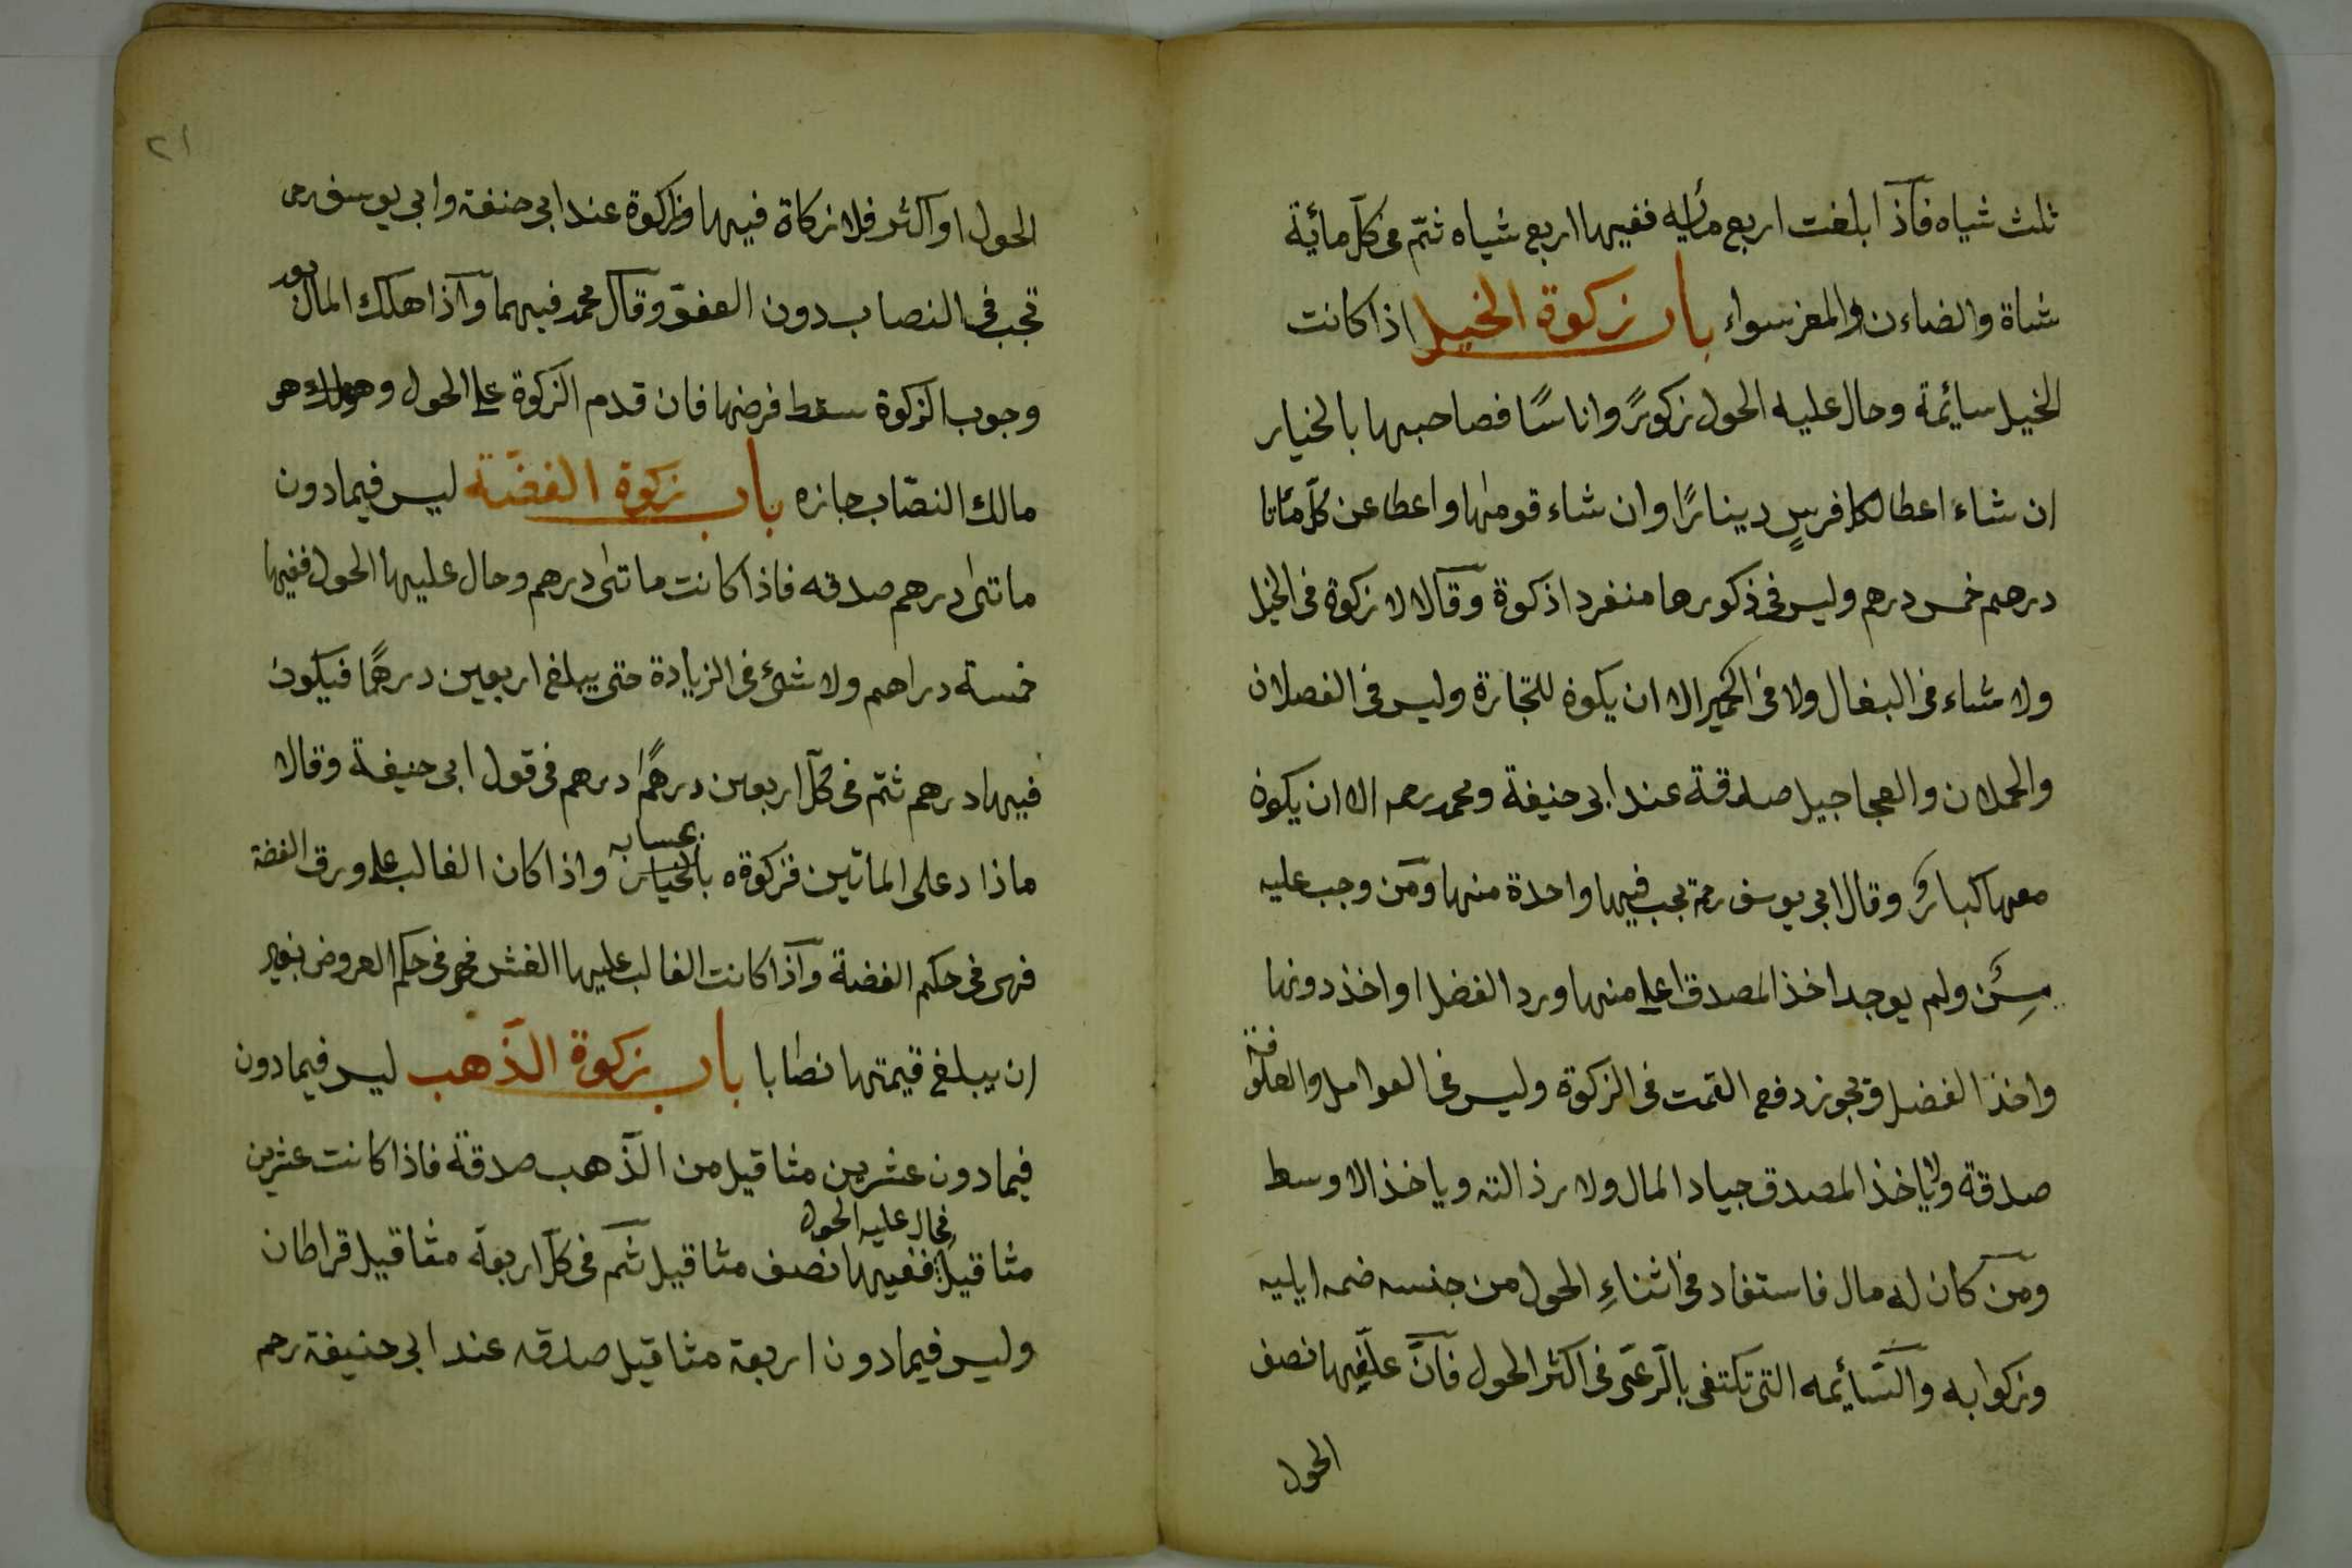 ثلث شياه فآذا بلغت اربع مأيه ففيها اربع شياه ثمّ فى كلّ مائية
شاة والضاءن والمعز سواء باب زكوة الخيل اذا كانت
الخيل سائمة وحال عليه الحول زكورً واناسًا فصاحبها بالخيار
ان شاء اعطا لكل فرسٍ دينارًا وان شاء قومها واعطا عن كلّ مأتا
درهم خمس درهم وليس فى ذكورها منفردا ذكوة وقالا لا زكوة فى الخيل
ولا شاء فى البغال ولا فى الحمير الا ان يكون للتجارة وليس فى الفصلان
والحملان والعجاجيل صدقة عند ابى حنيفة ومحمد رحمه الا ان يكون
معها كبارٌ وقال ابى يوسف رحمة يجب فيها واحدة منها ومن وجب عليه
مسِنٌ ولم يوجد اخذ المصدق اعلى منها ورد الفضل او اخذ دونها
واخذ الفضل ويجوز دفع القمت فى الزكوة وليس فى العوامل والعلوفة
صدقة ولا ياخذ المصدق جياد المال ولا رذالته وياخذ الاوسط
ومن كان له مال فاستفاد فى اثناءِ الحول من جنسه ضمه ايليه
وزكوا به والسّائمه التى تكتفى بالرّعى فى اكثر الحول فآنّ علفيها نصف
الحول
٢١
الحول او اكثر فلا زكاة فيها والزكوة عند ابى حنفة وابى يوسف رحمه
تجب فى النصاب دون العفوّ وقال محمد فيهما وآذا هلك المال بعد
وجوب الزكوة سقط فرضها فان قدم الزكوة على الحول وهو
مالك النصّاب جازه باب زكوة الفضّة ليس فيما دون
ماتى درهم صدقه فاذا كانت ماتى درهم وحال عليها الحول ففيها
خمسة دراهم ولا شئ فى الزيادة حتى يبلغ اربعين درهمًا فيكون
فيها درهم ثمّ فى كلّ اربعين درهمًا درهم فى قول ابى حنيفة وقالا
ماذاد على المأتين فزكوة ه بحسابه واذا كان الغالب على ورق الفضة
فهى فى حكم الفضة وآذا كانت الغالب عليها الغش فهى فى حكم العروض بغير
ان يبلغ قيمتها نصابا باب زكوة الذّهب ليس فيما دون
فيما دون عشرين مثاقيل من الذّهب صدقة فاذا كانت عشرين
مثاقيل فحال عليه الحول ففيها نصف مثاقيل ثمّ فى كلّ اربعة مثاقيل قراطان
وليس فيما دون اربعة مثاقيل صدقه عند ابى حنيفة رحمه